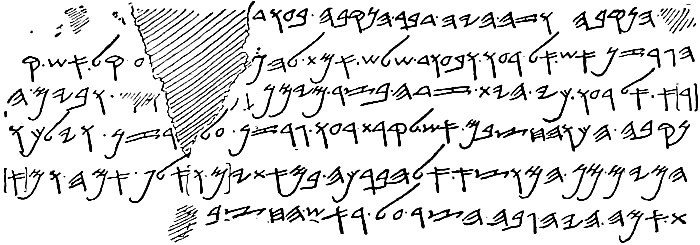 הנקבה . וזה . היה . דבר . הנקבה . בעוד
הגרזן . אש . אל . רעו . ובעוד . שלש . אמת . להנ ע . קל . אש . ק
רא . אל . רעו . כי . הית . זדה . בצר . מימן . ובים . ה
נקבה . הכו . החצבם . אש . לקרת . רעו . גרזן . על . גרזן . וילכו
המים . מן . המוצא . אל . הברכה . במאתים . ואלף . אמה . ומא
ת . אמה . היה . גבה . הצר . על . ראש . החצבם